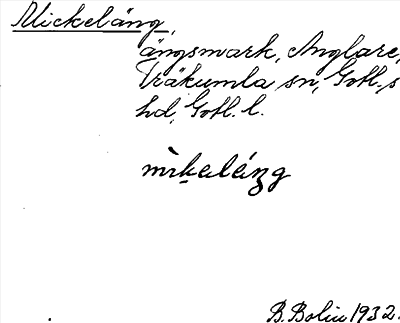 Mickeläng,
ängsmark, Anglare,
Träkumla sn, Gotl. s
hd, Gotl. l.
mìkaláŋg
B. Bolin 1932.